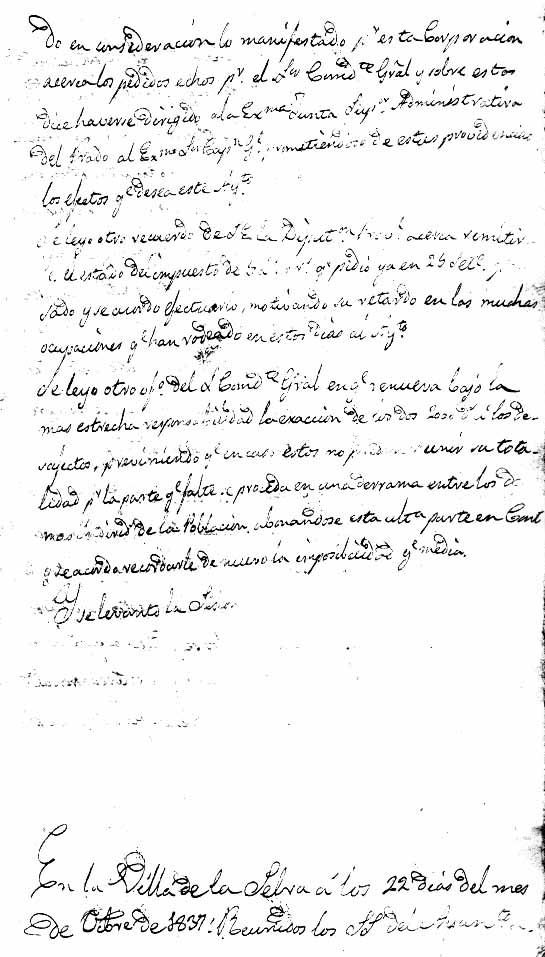 do en consideración lo manifestado pr esta Corporacion
acerca los pedidos echos pr. el Sor Comdte Gral y sobre estos
dice haverse dirigido a la Exma Junta Supr Administrativa
del Prado al Exmo Sor Capn Gl, prometiendose de estas providencias
los efectos qe desea este Aytto
Se leyo otro recuerdo de S.E. la Diputn Provl acerca remitir
el estado del impuesto de qe pidio ya en 25
sado y se acordó efectuarlo, motivando su retardo en las muchas
ocupaciones qe han rodeado en estos dias al Aytto
Se leyo otro ofo del Sr Comdte Gral en qe renueva bajo la
mas estrecha responsabilidad la exacción de los dos á los de-
safectos, previniendo qe en caso estos no puedan reunir su tota-
lidad pr la parte qe falte se proceda en una derrama entre los de
mas individs de la Poblacion, abonandose esta ulta parte en Cont
y se acordó recordarle de nuevo la imposibilidad qe media.
Y se levantó la Sesion
En la Villa de la Selva á los 22 dias del mes
de Octbre de 1837: Reunidos los SS. del Ayuntn.